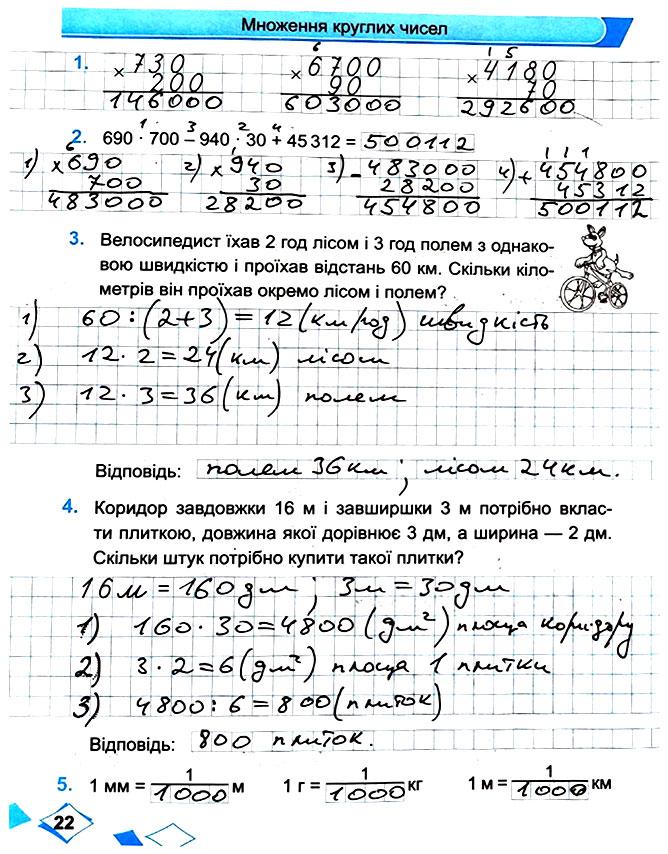 Множення круглих чисел
1. 730 6 6700 1 5 4180
× 200 × 90 × 70
146000 603000 292600
2. 690 · 700 – 940 · 30 + 45 312 = 500112
1 3 2 4
1) 6 × 690 2) 1 × 940 3) - 483000 4) 1 1 1 + 454800
700 30 28200 45312
483000 28200 454800 500112
3. Велосипедист їхав 2 год лісом і 3 год полем з однако-
вою швидкістю і проїхав відстань 60 км. Скільки кіло-
метрів він проїхав окремо лісом і полем?
1) 60 : (2+3) = 12 (км/год) швидкість
2) 12 · 2 = 24 (км) лісом
3) 12 · 3 = 36 (км) полем
Відповідь: полем 36 км; лісом 24 км.
4. Коридор завдовжки 16 м і завширшки 3 м потрібно вклас-
ти плиткою, довжина якої дорівнює 3 дм, а ширина — 2 дм.
Скільки штук потрібно купити такої плитки?
16 м = 160 дм ; 3м = 30 дм
1) 160 · 30 = 4800 (дм²) площа коридору
2) 3 · 2 = 6 (дм²) площа 1 плитки
3) 4800 : 6 = 800 (плиток)
Відповідь: 800 плиток.
5. 1 мм = 1/1000 м 1 г = 1/1000 кг 1 м = 1/1000 км
22